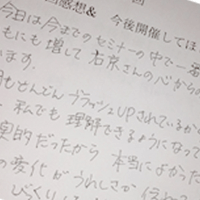 回感想& 今後開催してほ
今日は今までのセミナーの中で一番
もにも増して右京さんの心からの
います。
月もぜんどん ブラッシュUPされているから
私でも理解できるようになって
実的だったから 本当によかった
の変化がうれしさが 伝わ
びっくり